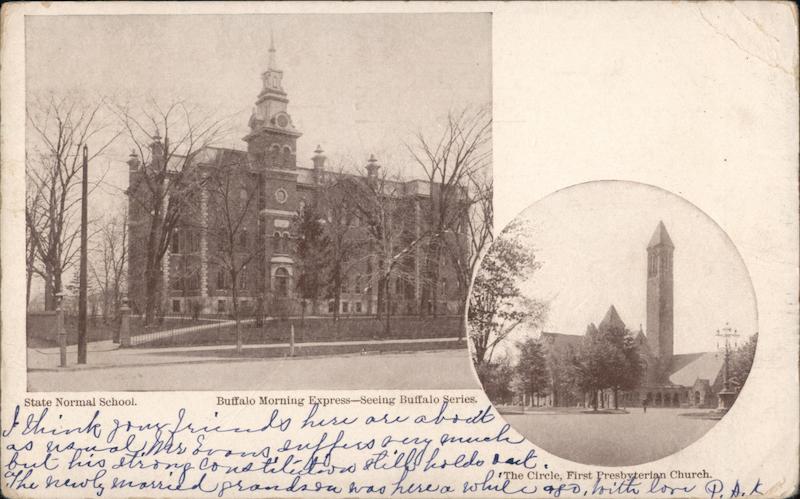 State Normal School.
Buffalo Morning Express—Seeing Buffalo Series.
The Circle, First Presbyterian Church.
I think your friends here are about
as usual. Mr Evans suffers very much
but his strong constitution still holds out.
The newly married grandson was here a while ago, with love P. D. K